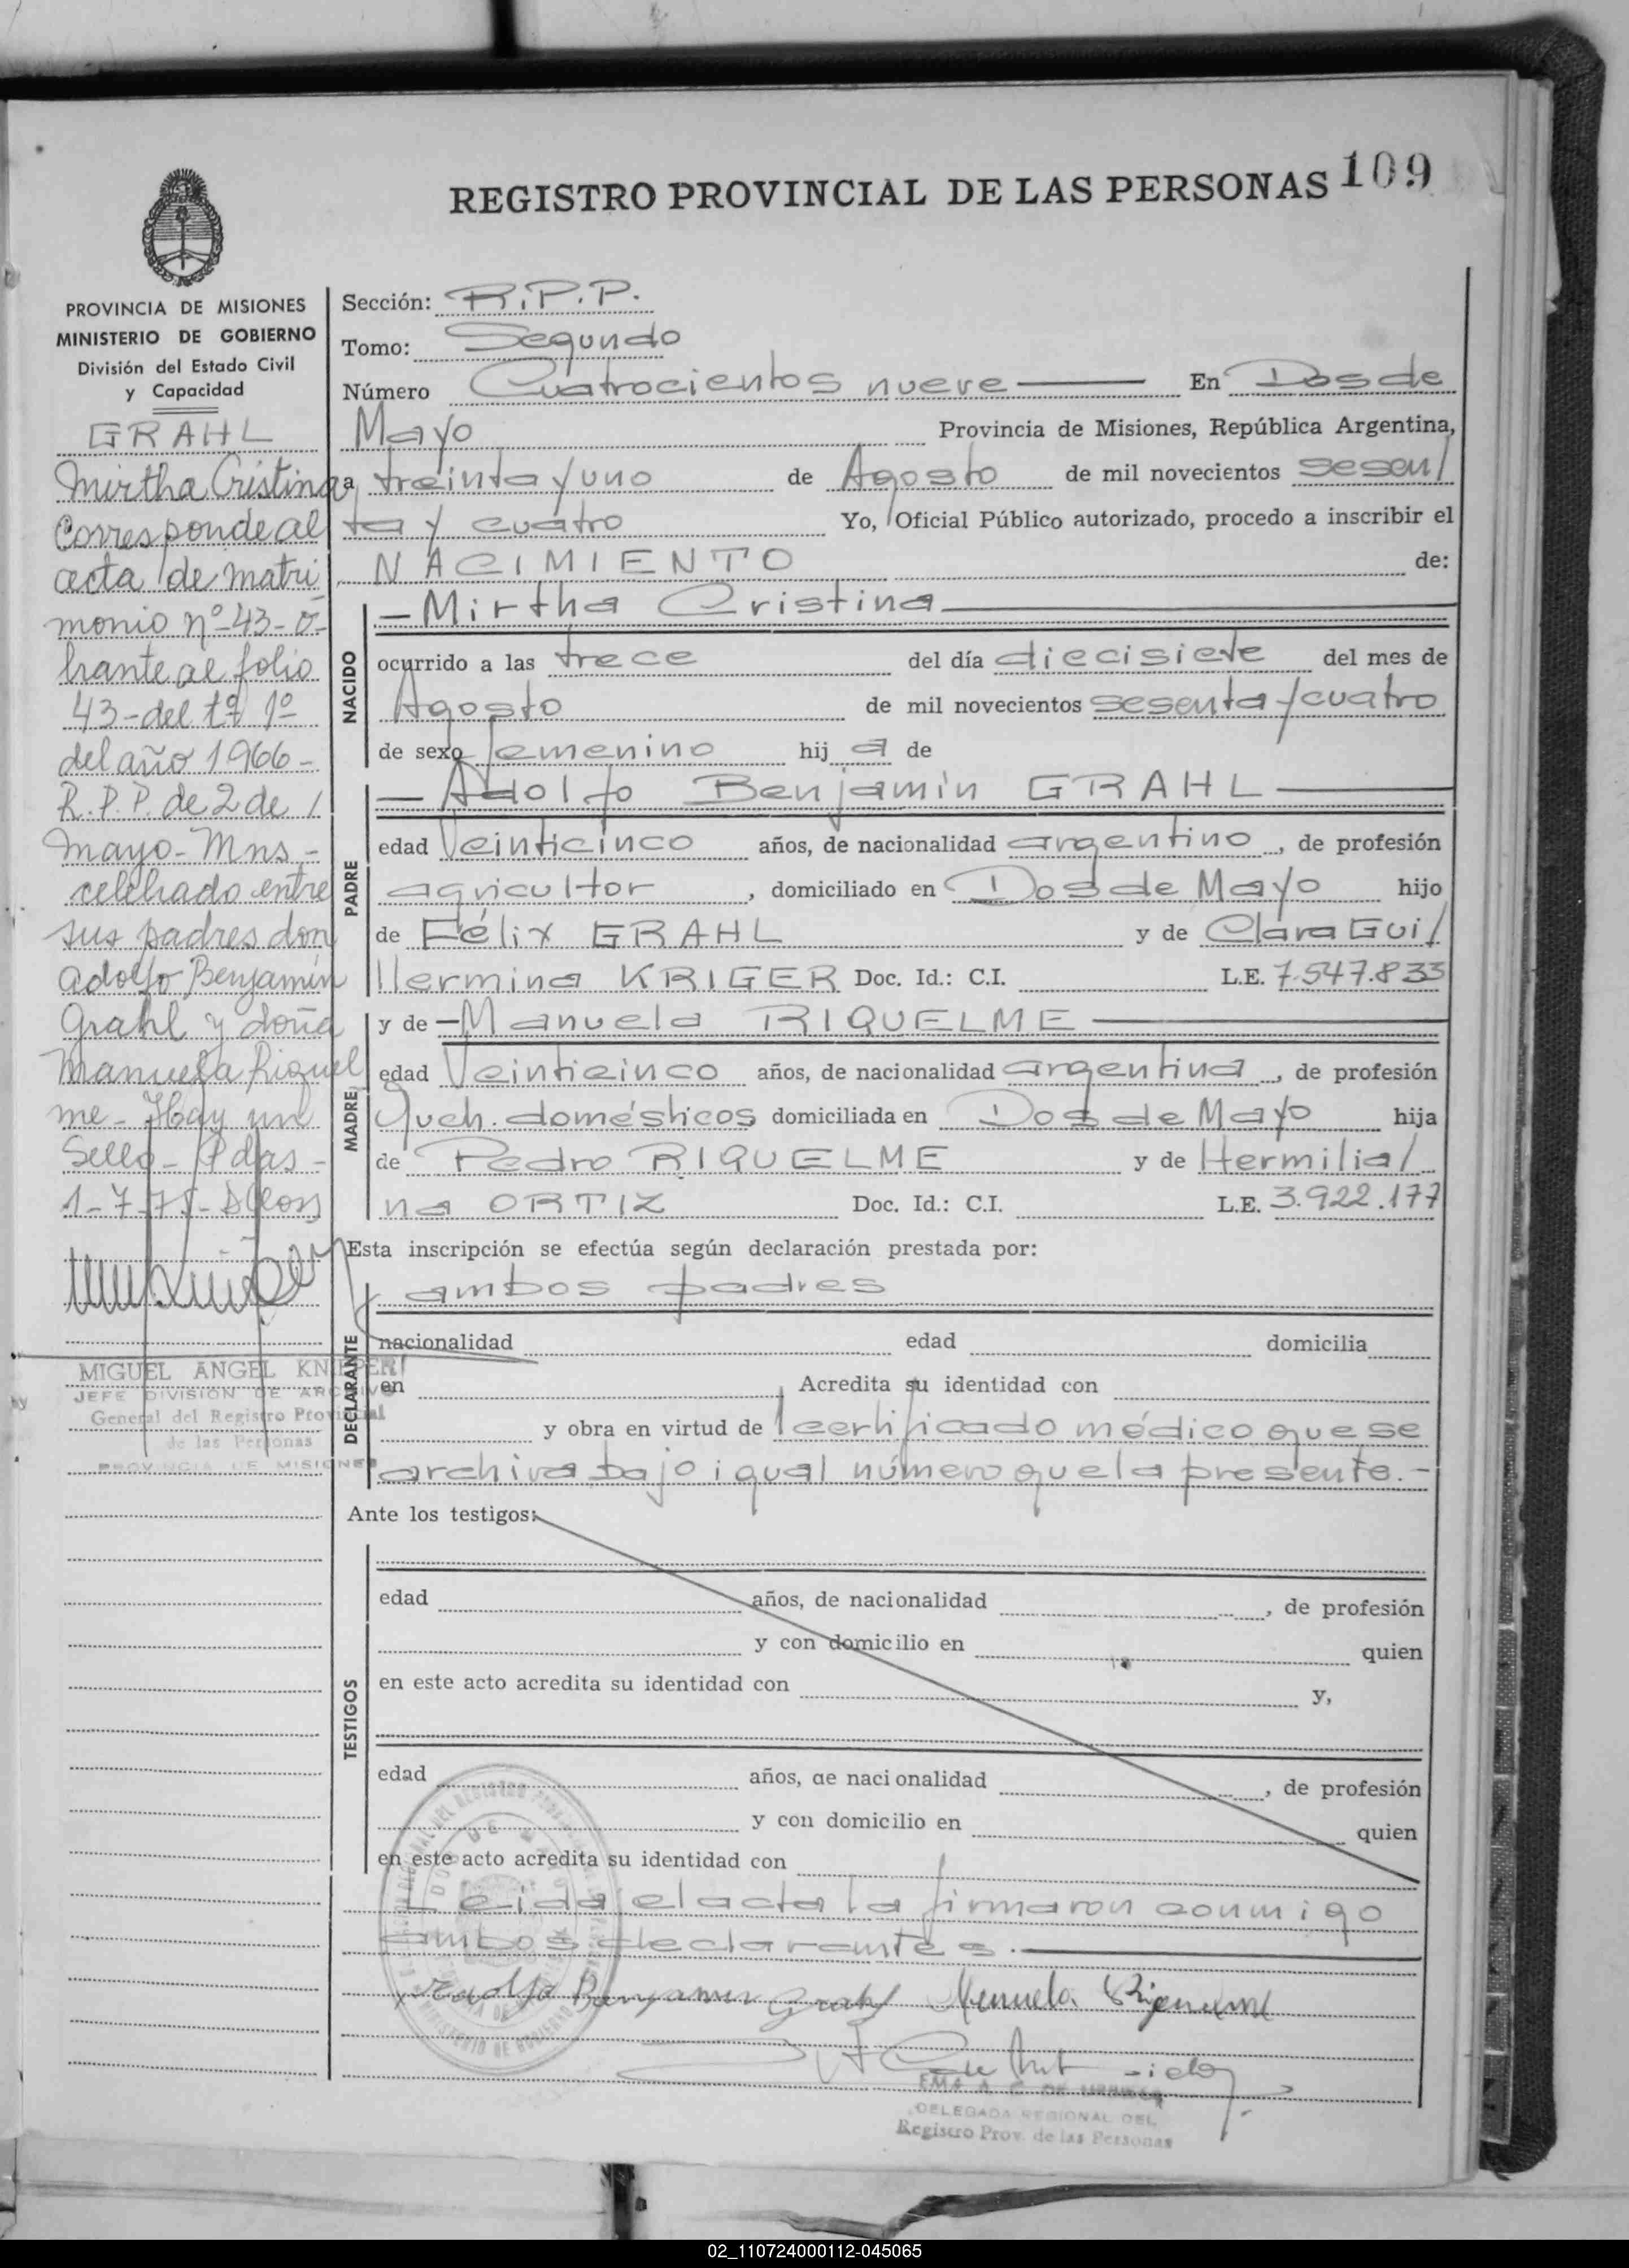 REGISTRO PROVINCIAL DE LAS PERSONAS 109
PROVINCIA DE MISIONES
MINISTERIO DE GOBIERNO
División del Estado Civil
y Capacidad
GRAHL
Mirtha Cristina
Corresponde al
acta de matri
monio nº 43- o-
brante al folio
43-del tº 1º
del año 1966-
R.P.P. de 2 de /
Mayo-Mns-
celebrado entre
sus padres don
Adolfo Benjamín
Grahl y doña
Manuela Riquel
me- Hay un
Sello- Pdas-
1-7-75-
MIGUEL ANGEL KNIPPER
JEFE DIVISION DE ARCHIVO
General del Registro Provincial
de las Personas
PROVINCIA DE MISIONES
Sección: R.P.P.
Tomo: Segundo
Número Cuatrocientos nueve En Dos de
Mayo Provincia de Misiones, República Argentina,
a treinta y uno de Agosto de mil novecientos sesen/
ta y cuatro Yo, Oficial Público autorizado, procedo a inscribir el
NACIMIENTO de:
NACIDO
- Mirtha Cristina
ocurrido a las trece del día diecisiete del mes de
Agosto de mil novecientos sesenta y cuatro
de sexo femenino hij a de
PADRE
- Adolfo Benjamín GRAHL
edad Veinticinco años, de nacionalidad argentino, de profesión
agricultor, domiciliado en Dos de Mayo hijo
de Félix GRAHL y de Clara Gui/
llermina KRIGER Doc. Id.: C.I. L.E. 7.547.833
MADRE
y de - Manuela RIQUELME
edad Veinticinco años, de nacionalidad argentina, de profesión
Queh. domésticos domiciliada en Dos de Mayo hija
de Pedro RIQUELME y de Hermilia/
na ORTIZ Doc. Id.: C.I. L.E. 3.922.177
Esta inscripción se efectúa según declaración prestada por:
DECLARANTE
ambos padres
nacionalidad edad domicilia
en Acredita su identidad con
y obra en virtud de certificado médico que se
archiva bajo igual número que la presente.-
Ante los testigos:
TESTIGOS
edad años, de nacionalidad , de profesión
y con domicilio en quien
en este acto acredita su identidad con y,
edad años, de nacionalidad , de profesión
y con domicilio en quien
en este acto acredita su identidad con
Leida el acta la firmaron conmigo
ambos declarantes.
Adolfo Benjamin Grahl Manuela Riquelme
DELEGADA REGIONAL DEL
Registro Prov. de las Personas
02_110724000112-045065